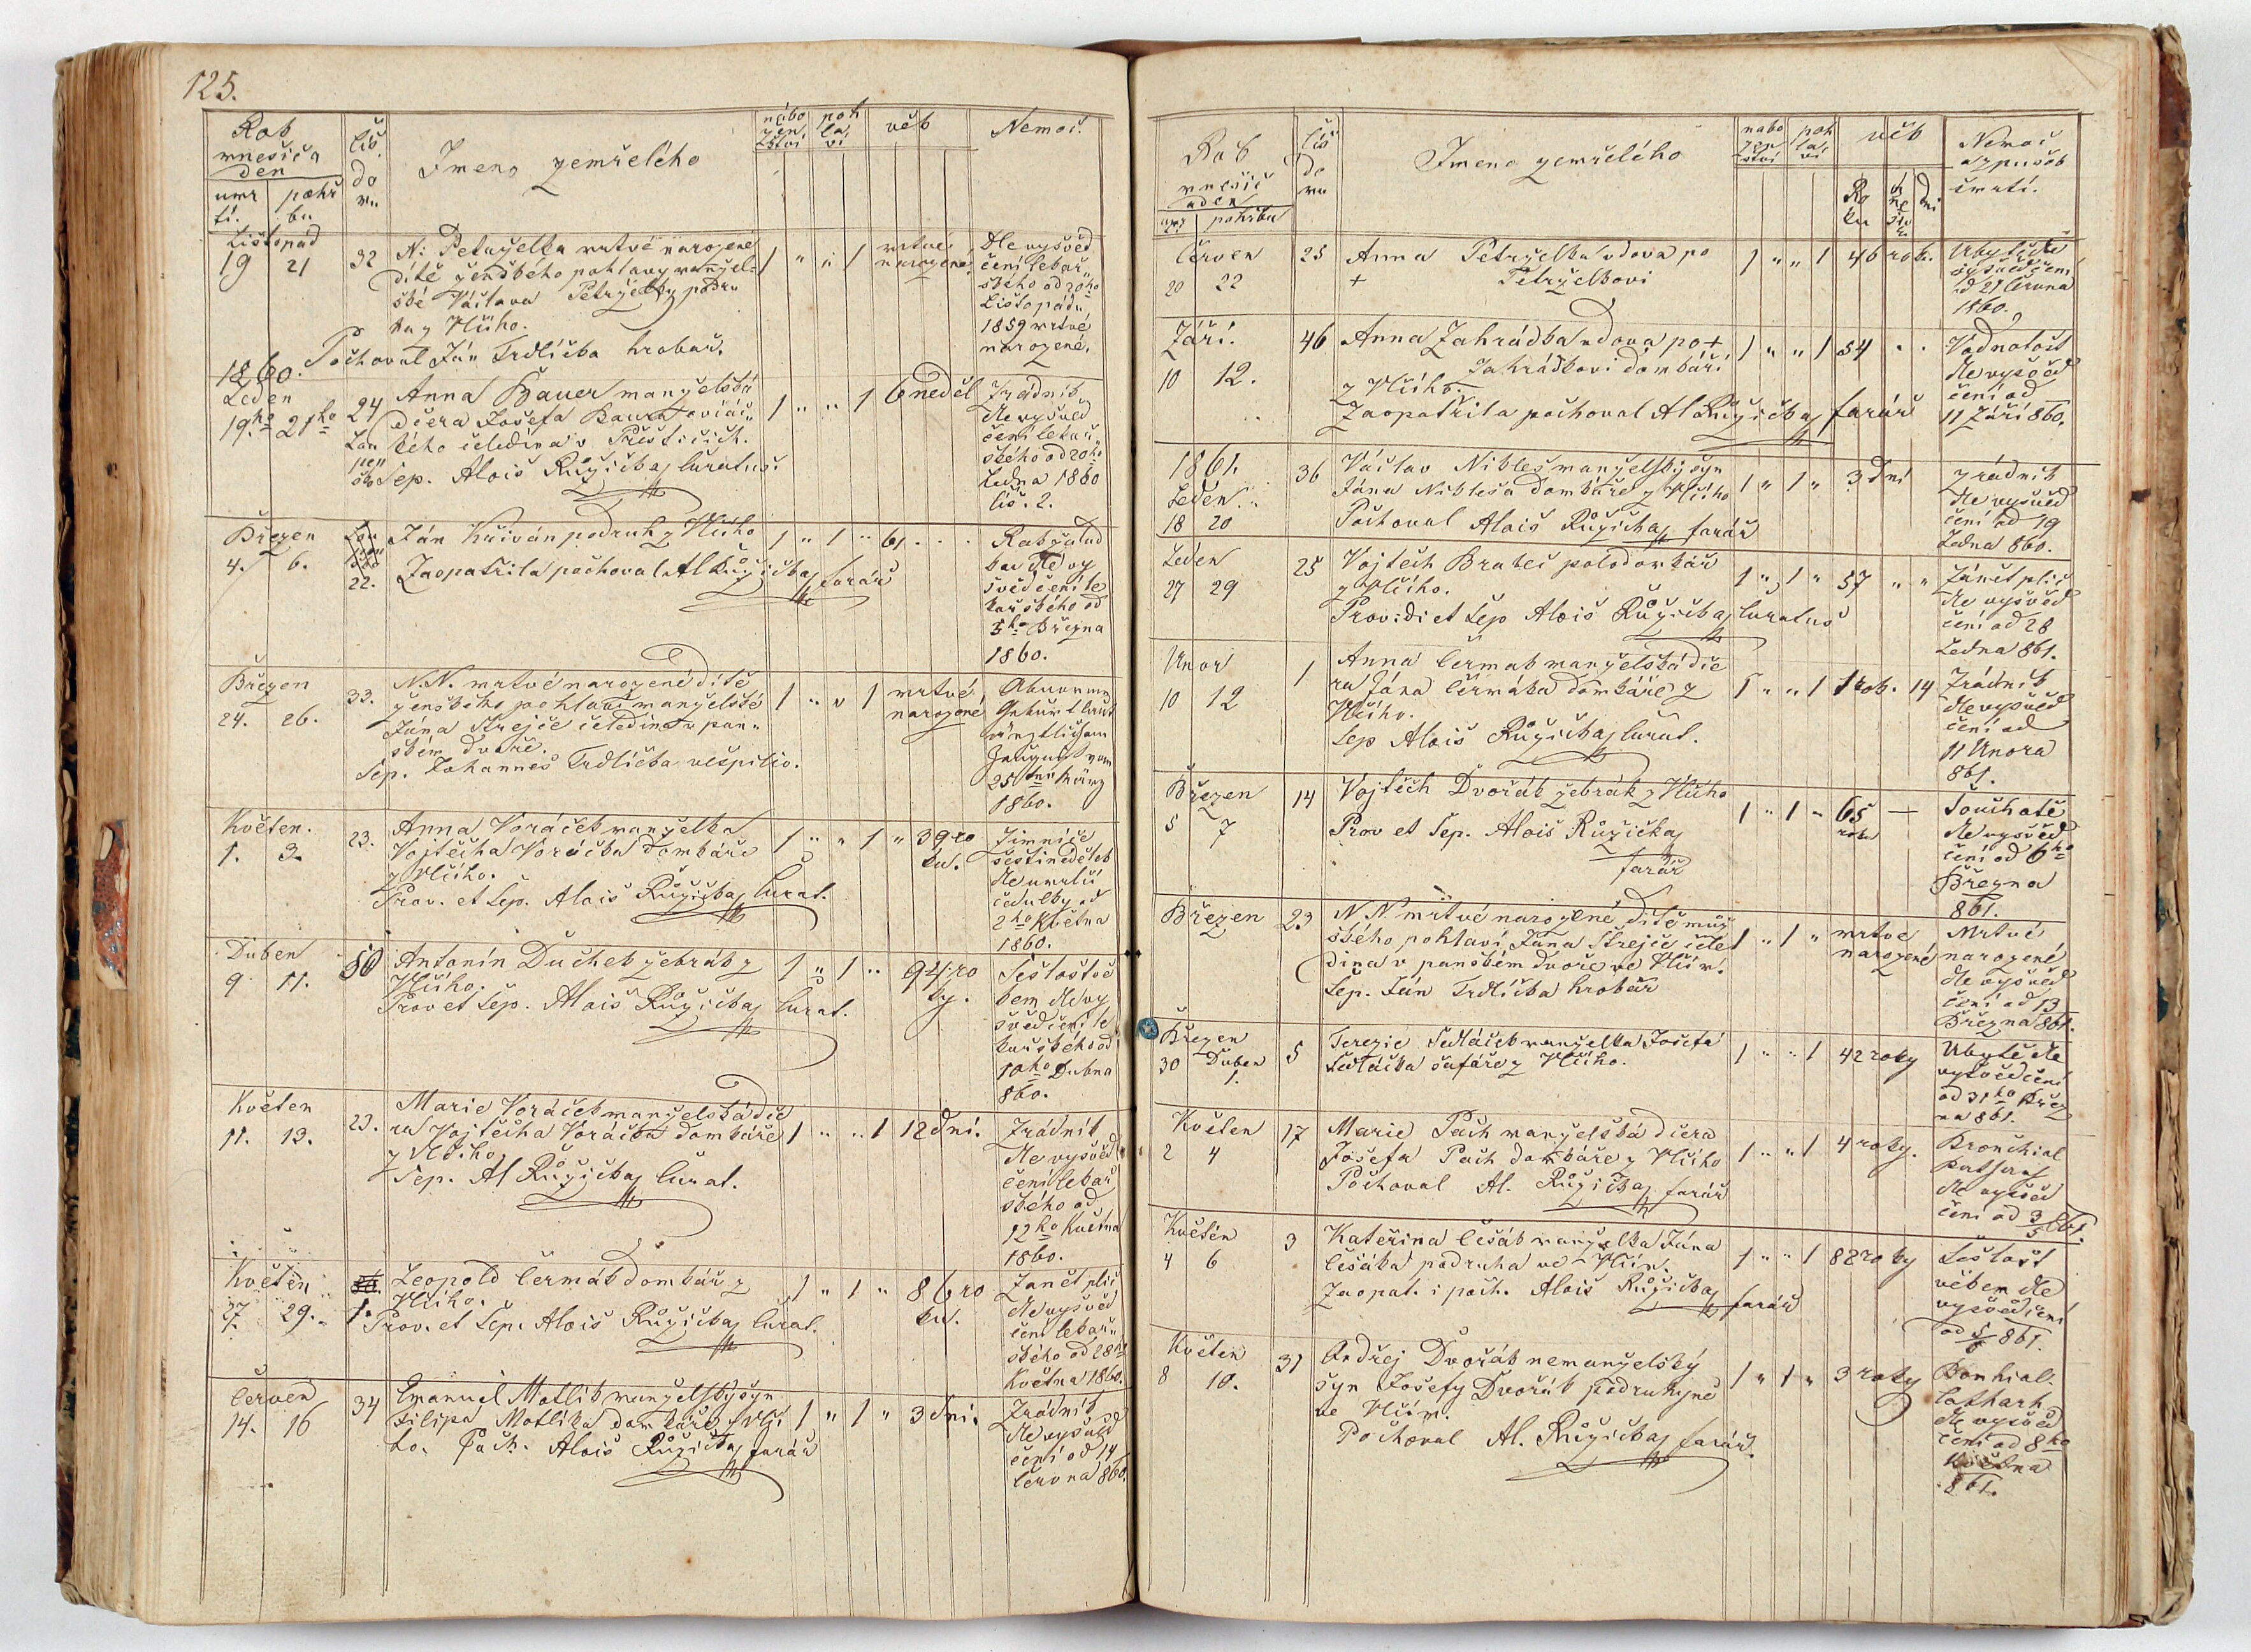 125.
Rok
měsíc a
den
umr
tí.
pohř
bu
čís.
do
mu
Jmeno zemřelého
nábo
žen
ství
poh
la
ví
věk
Nemoc.
Listopad
19 21
32
N: Petrželka mrtvé narozené
dítě ženského pohlavy manžel-
ské Václava Petrželky podru
ha z Vlčího.
Pochoval Ján Trdlička hrobař.
1 " " 1
mrtvé
narozené
dle vysvěd
čení lekař
ského od 20ho
Listopadu
1859 mrtvé
narozené.
1860.
Leden
19ho 21ho
24
Anna Bauer manželská
dcera Josefa Bauera ovčác
kého čeledína v Přešticích.
Sep. Alois Růžička, Curatus.
1 " " 1
6 neděl
Zrádník
dle vysvěd
čení lekař
ského od 20ho
Ledna 1860
čís. 2.
Březen
4. 6.
22.
Ján Křiván podruh z Vlčího
Zaopatřil a pochoval Al Růžička, farář
1 " 1 " 61 . . .
Rak žalud
ka dle vy
svědčení le
kařského od
5ho Března
1860.
Březen
24. 26.
33.
N.N. mrtvé narozené dítě
ženského pohlaví manželské
Jána Strejce čeledína v pan-
ském dvoře.
Sep. Johannes Trdlička vespilio.
1 " " 1
mrtvé
narozené
Abnorme
Geburt laut
ärztlichem
Zeugniß vom
25ten März
1860.
Květen.
1. 3.
23.
Anna Voráček manželka
Vojtěcha Voráčka domkáře
z Vlčího.
Prov. et Sep. Alois Růžička, Curat.
1 " " 1 " 39 ro
ků.
Zimnice
šestinedělek
dle umrlčí
cedulky od
2ho Května
1860.
Duben
9 11.
50
Antonín Duchek žebrák z
Vlčího.
Prov et Sep. Alois Růžička, Curat.
1 " 1 " 94 ro
ky.
Sešlost vě
kem dle vy
svědčení le
kařského od
10ho Dubna
860.
Květen
11. 13.
23.
Marie Voráček manželská dce
ra Vojtěcha Voráčka domkáře
z Vlčího
Sep. Al Růžička, Curat.
1 " " 1 12 dní.
Zrádník
dle vysvěd
čení lekař
ského od
12ho Května
1860.
Květen
27. 29.
1.
Leopold Čermák domkář z
Vlčího.
Prov. et Sep. Alois Růžička, Curat.
1 " 1 " 86 ro
ků.
Zánět plic
dle vysvěd
čení lekař
ského od 28ho
Května 1860.
Červen
14. 16
34
Emanuel Motlík manželský syn
Filipa Motlíka domkáře z Vlčí
ho. Poch. Alois Růžička, farář
1 " 1 " 3 dni.
Zrádník
dle vysvěd
čení od 14
Června 860.
Rok
měsíc
a den
umr
pohřbu
čís
do
mu
Jmeno zemřelého
nabo
žen
ství
poh
la
ví
věk
Ro
ku
dni
Nemoc
a způsob
smrti.
Červen
20 22
25
Anna Petrželka vdova po
+ Petrželkovi
1 " " 1 46 rok.
Ubytě dle
vysvědčení
od 21 Června
1860.
Září.
10 12.
46
Anna Zahrádka vdova po +
Zahrádkovi domkáři
z Vlčího.
Zaopatřil a pochoval Al Růžička, farář
1 " " 1 54 . .
Vodnatost
dle vysvěd
čení od
11 Září 860.
1861.
Leden
18 20
36
Václav Nikleš manželský syn
Jána Nikleša domkáře z Vlčího
Pochoval Alois Růžička, farář
1 " 1 " 3 dní
zrádník
dle vysvěd
čení od 19
Ledna 860.
Leden
27 29
25
Vojtěch Bratec polodomkář
z Vlčího.
Providi et Sep Alois Růžička, Curatus
1 " 1 " 57 " "
Zánět plic
dle vysvěd
čení od 28
Ledna 861.
Unor
10 12
1
Anna Čermak manželská dce
ra Jána Čermáka domkáře z
Vlčího.
Sep Alois Růžička, Curat.
1 " " 1 1 rok. 14
Zrádník
dle vysvěd
čení od
11 Unora
861.
Březen
5 7
14
Vojtěch Dvořák žebrák z Vlčího
Prov et Sep. Alois Růžička,
farář
1 " 1 " 65 —
roků
Souchotě
dle vysvěd
čení od 6ho
Března
861.
Březen
23
N.N. mrtvé narozené dítě muž
ského pohlaví Jána Strejce čele
dína v panském dvoře ve Vlčím.
Sep. Ján Trdlička hrobař
1 " 1 "
mrtvé
narozené
Mrtvě
narozené
dle vysvěd
čení od 13
Března 861.
Březen
30 Duben
1.
5
Terezie Sedláček manželka Josefa
Sedláčka šafáře z Vlčího.
1 " " 1 42 roky
Ubytě dle
vysvědčení
od 31ho Břez
na 861.
Květen
2 4
17
Marie Pach manželská dcera
Josefa Pach domkáře z Vlčího
Pochoval Al. Růžička, farář
1 " " 1 4 roky.
Bronchial
dle vysvěd
čení od 3/5 861.
Květen
4 6
3
Kateřina Cešák manželka Jána
Cešáká podruha ve Vlčím.
Zaopat. i poch. Alois Růžička, farář
1 " " 1 82 roky
Sešlost
věkem dle
vysvědčení
od 5/5 861.
Květen
8 10.
31
Ondřej Dvořák nemanželský
syn Josefy Dvořák podruhyně
ve Vlčím.
Pochoval Al. Růžička, farář.
1 " 1 " 3 roky
Bonhial.
Catharh
dle vysvěd
čení od 8ho
Května
861.